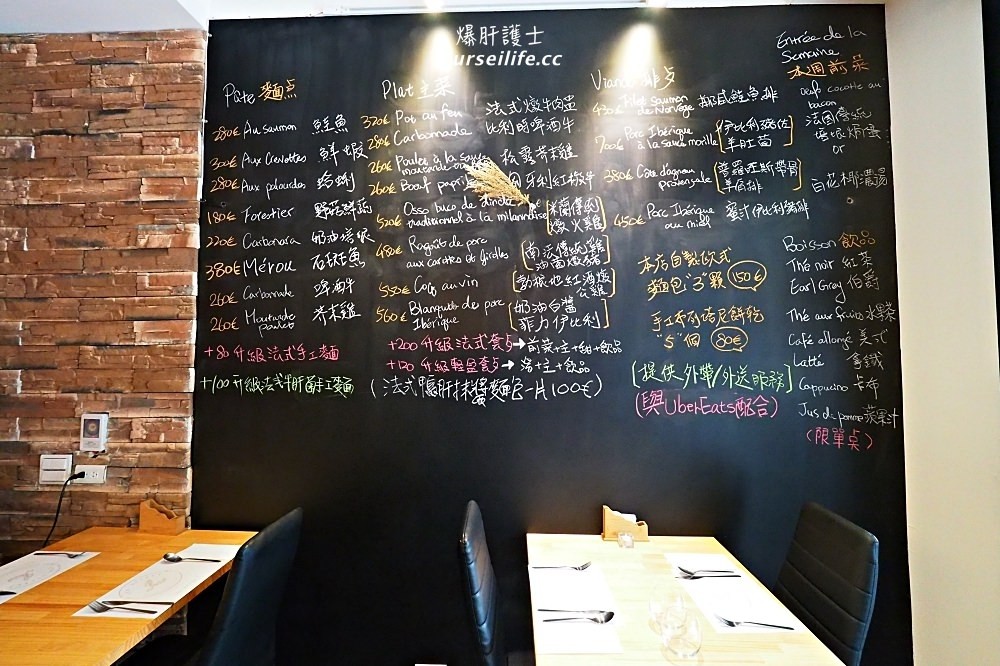 爆肝護士
nurseilife.cc
Pâte 麵点
280€ Au saumon 鮭魚
300€ Aux Crevettes 鮮蝦
280€ Aux palourdes 蛤蜊
180€ Forestier 野菇鮮蔬
220€ Carbonara 奶油培根
380€ Mérou 石斑魚
260€ Carbonade 啤酒牛
260€ Moutarde poulet 芥末雞
+80 升級法式手工麵
+100 升級法式羊肝菌手工麵
Plat 主菜
320€ Pot au feu 法式燉牛肉盅
280€ Carbonade 比利時啤酒牛
260€ Poulet à la sauce
moutarde
松露芥末雞
260€ Boeuf paprika 匈牙利紅椒牛
520€ Osso buco de dinde
traditionnel à la milannaise
米蘭傳統
燉火雞
480€ Ragoût de porc
aux carottes et girolles
南法傳統雞
油菌燉豬
550€ Coq au vin
勃根地紅酒燉
公雞
560€ Blanquette de porc
Ibérique
奶油白醬
菲力伊比利
+200 升級法式套点→前菜+主+甜+飲品
+120 升級輕盈套点→湯+主+飲品
(法式鴨肝抹醬麵包一片100€)
Viande 排点
430€ Filet saumon
de Norvège
挪威鮭魚排
700€ Porc Ibérique
à la sauce morille
伊比利豬佐
羊肚菌
380€ Côte d'agneau
provençale
普羅旺斯帶骨
羊肩排
450€ Porc Ibérique
au miel
蜜汁伊比利豬排
本店自製歐式
麵包"3"顆 150€
手工布列塔尼餅乾
"5"個 80€
[提供外帶/外送服務]
(與UberEats配合)
Entrée de la
Semaine
本週前菜
Oeuf cocotte au
bacon
法國傳統
培根焗蛋
or
百花椰濃湯
Boisson 飲品
Thé noir 紅茶
Earl Grey 伯爵
Thé aux fruits 水果茶
Café allongé 美式
Latté 拿鐵
Cappucino 卡布
Jus de pomme 蘋果汁
(限單点)